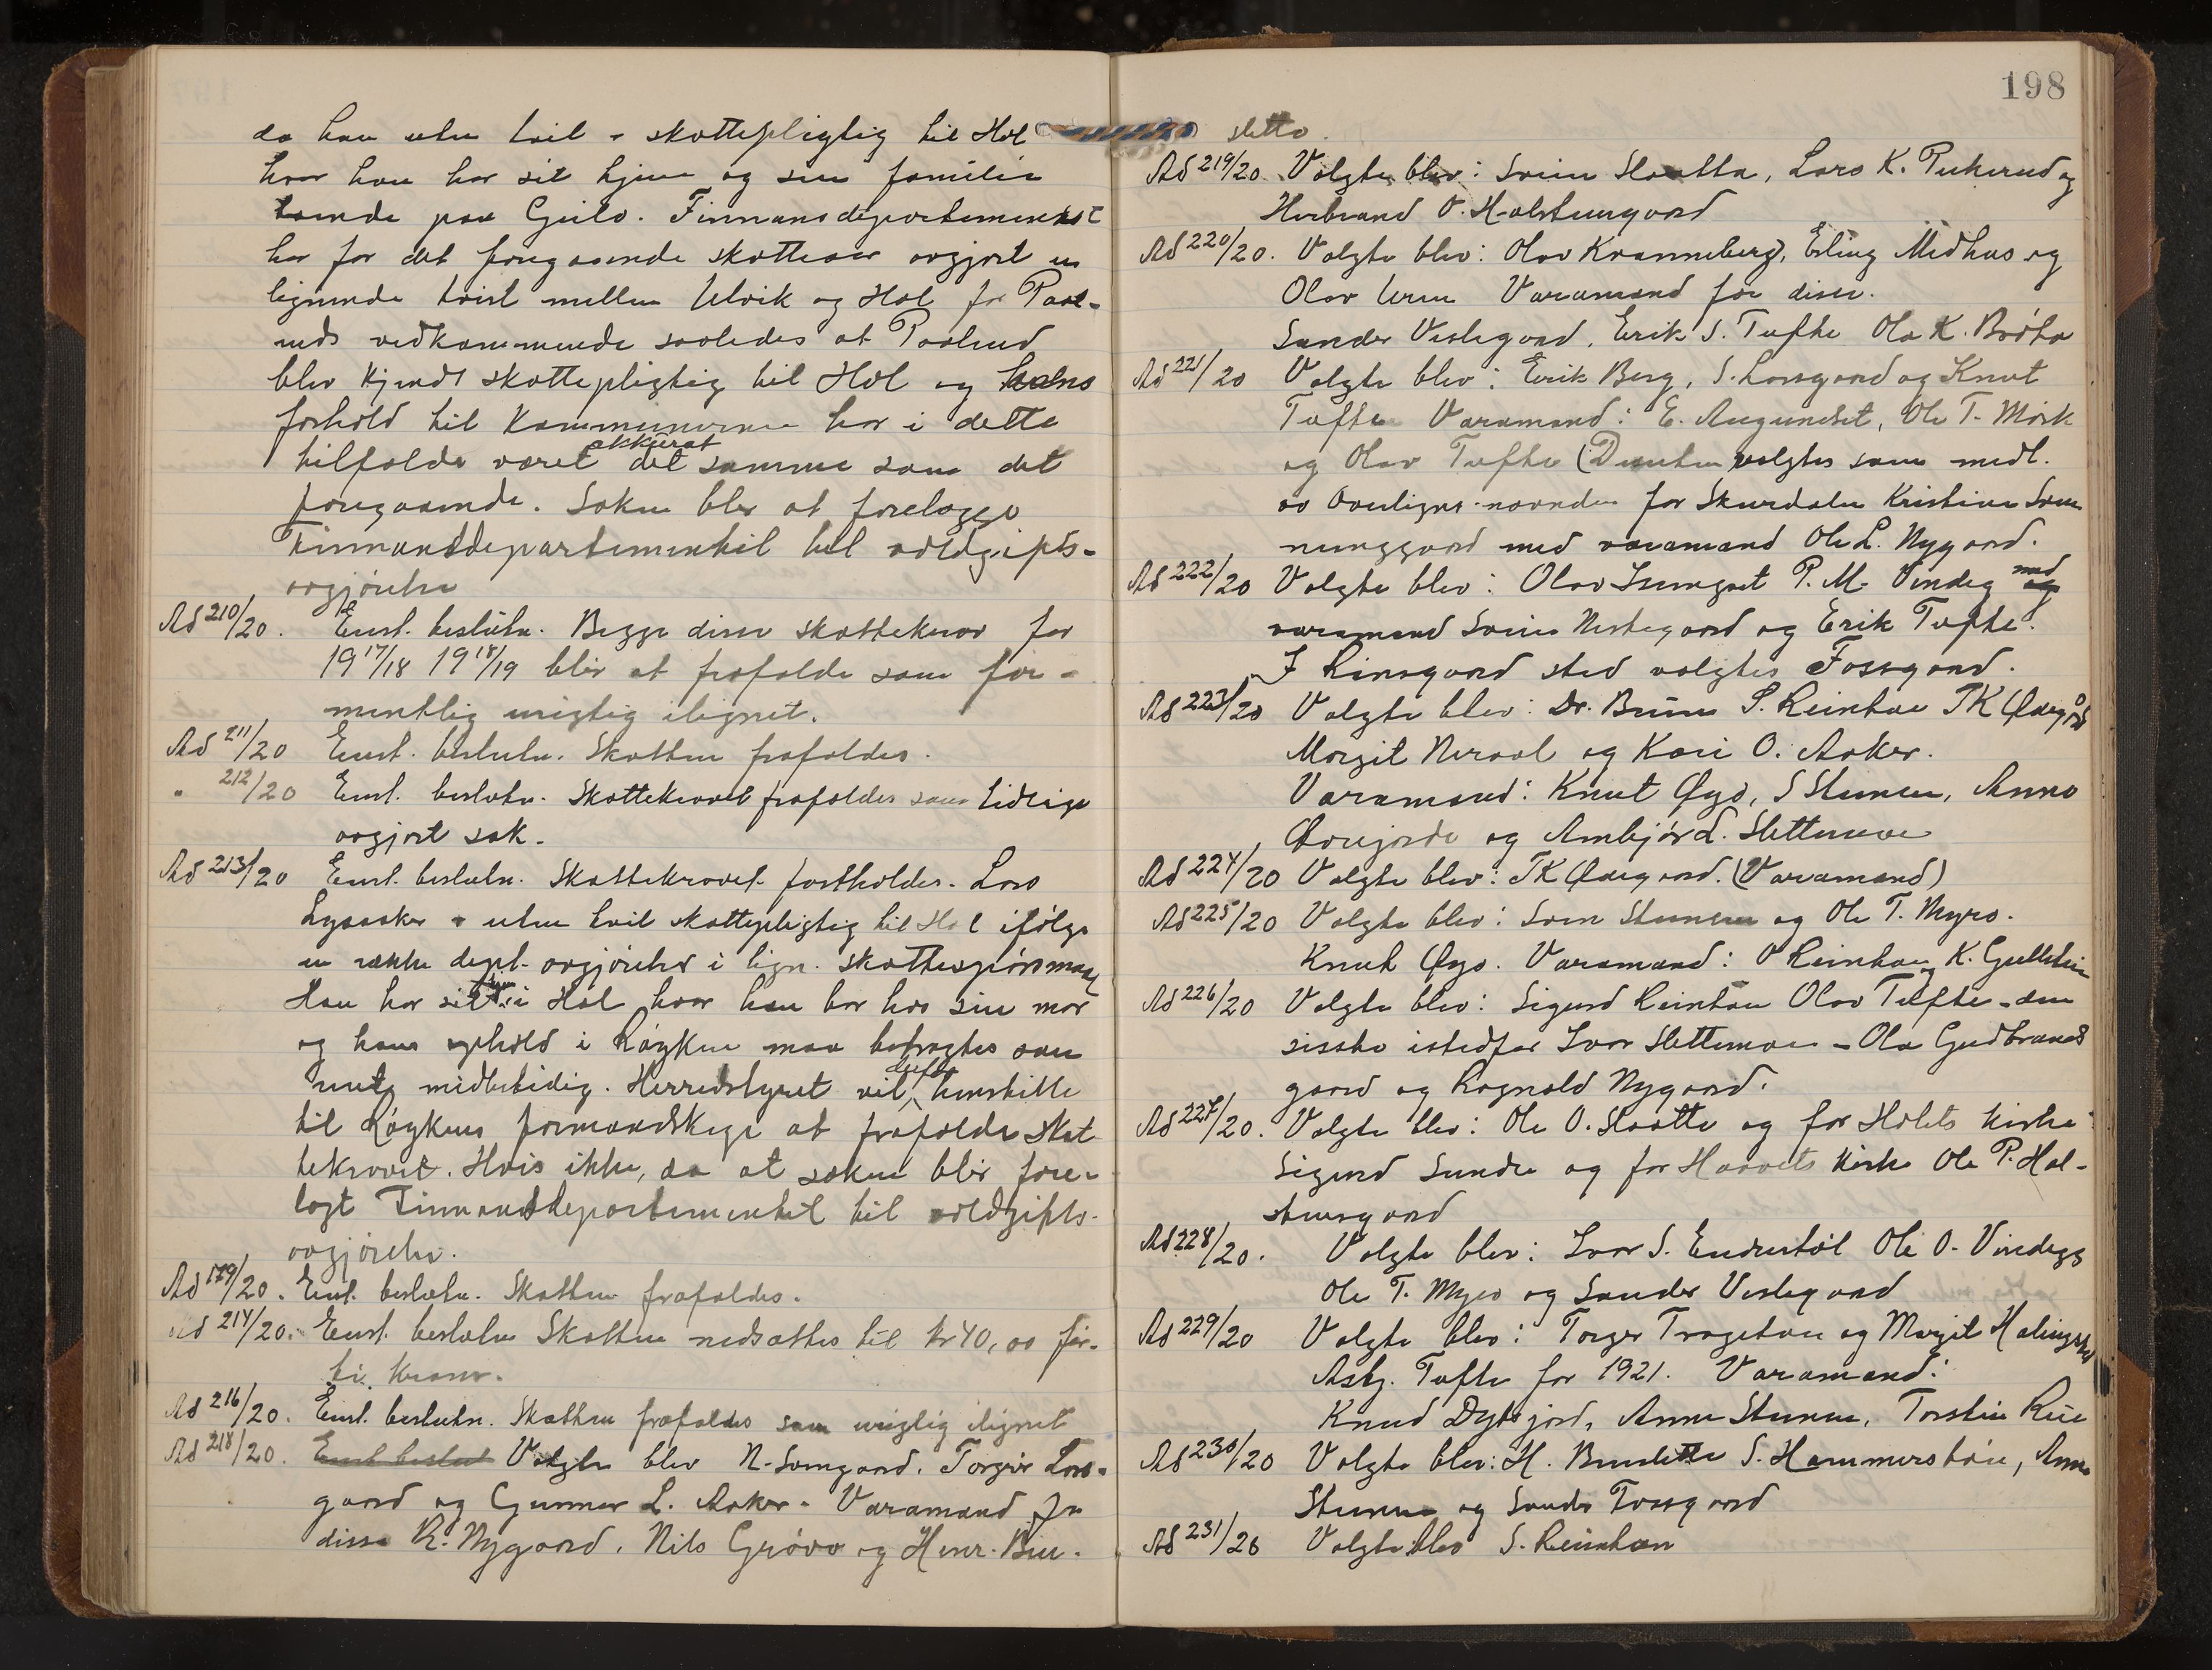 da han uten tvil er skattepligtig til Hol
hvor han har sit hjem og sin familie
boende paa Geilo. Finnansdepartementet
har for det foregaaende skatteaar avgjort en
lignende tvist mellem Ulvik og Hol for Paal-
ruds vedkommende saaledes at Paalrud
blev kjendt skattepligtig til Hol og hans
forhold til Kommunerne har i dette
tilfælde været akkurat det samme som det
foregaaende. Saken blev at forelægge
Finnansdepartementet til voldgifts-
avgjørelse
Ad 210/20. Enst. beslutn. Begge disse skattekrav for
1917/18 1918/19 blir at frafalde som for-
mentlig urigtig ilignet.
Ad 211/20 Enst. beslutn. Skatten frafaldes.
" 212/20 Enst. beslutn. Skattekravet frafaldes som tidligere
avgjort sak.
Ad 213/20 Enst. beslutn. Skattekravet fastholdes. Lars
Lysaaker er uten tvil skattepligtig til Hol ifølge
en række dept. avgjørelser i lign. skattespørsmaal
Han har sit hjem i Hol hvor han bor hos sin mor
og hans ophold i Røyken maa betragtes som
midlertidig. Herredstyret vil derfor henstille
til Røykens formandskap at frafalde skat-
tekravet. Hvis ikke, da at saken blir fore-
lagt Finnansdepartementet til voldgifts-
avgjørelse.
Ad 179/20. Enst. beslutn. Skatten frafaldes.
Ad 214/20. Enst. beslutn Skatten nedsættes til kr 40,00 før-
ti kroner.
Ad 216/20. Enst. beslutn. Skatten frafaldes som urigtig ilignet
Ad 218/20. Enst beslut Valgte blev N. Svengaard, Torgeir Lars-
gaard og Gunnar L. Aaker. Varamænd for
disse R. Nygaard, Nils Grøvo og Henr. Bru-
198
sletto.
Ad 219/20 Valgte blev: Svein Slaatta, Lars K. Pukerud og
Herbrand O. Holstensgaard
Ad 220/20. Valgte blev: Olav Kvanneberg, Erling Medhus og
Olav Varamænd for disse.
Sander Veslegaard, Erik S. Tufte Ola K. Bråta
Ad 221/20 Valgte blev: Erik Berg, S. Larsgaard og Knut
Tufte Varamænd: E. Augunset, Ole T. Mørk
og Olav Tufte (Desuten valgtes som medl.
av Overligns.nævnden for Skurdalen Kristian Sven-
nunggaard med varamand Ole L. Nygaard.
Ad 222/20 Valgte blev: Olav P. M. Vindeg og med
varamænd Svein Nestegaard og Erik Tufte.
I Reinsgaard sted valgtes Fossgaard.
Ad 223/20 Valgte blev: Dr. Bruun S. Reinton TK Øvregård
Margit Neraal og Kari O. Aaker.
Varamænd: Knut Øyo, S Stenersen, Anna
Øvrejorde og Ambjør L. Slettemoen
Ad 224/20 Valgte blev: TK Øvregaard. (Varamænd)
Ad 225/20 Valgte blev: Sven Stenersen og Ole T. Myro.
Knut Øyo. Varamænd: O Reinton og K. Gullstein
Ad 226/20 Valgte blev: Sigurd Reinton Olav Tufte - den
sisste istedfor Ivar Slettemoen - Ola Gudbrands
gaard og Ragnvald Nygaard.
Ad 227/20. Valgte blev: Ole O. Slaatto og for Holets kirke
Sigurd Sundre og for Hovets kirke Ole P. Hol-
stensgaard
Ad 228/20. Valgte blev: Ivar S. Endrestøl Ole O. Vindegg
Ole T. Myro og Sander Veslegaard
Ad 229/20 Valgte blev: Torger Trageton og Margit Halingstad
Asbj. Tufte for 1921. Varamænd:
Knud Dyssjord, Anne Stenersen, Torstein Rue
Ad 230/20 Valgte blev: H. Brusletto S. Hammersbøen, Anna
og Sander Fossgaard
Ad 231/20 Valgte blev S. Reinton